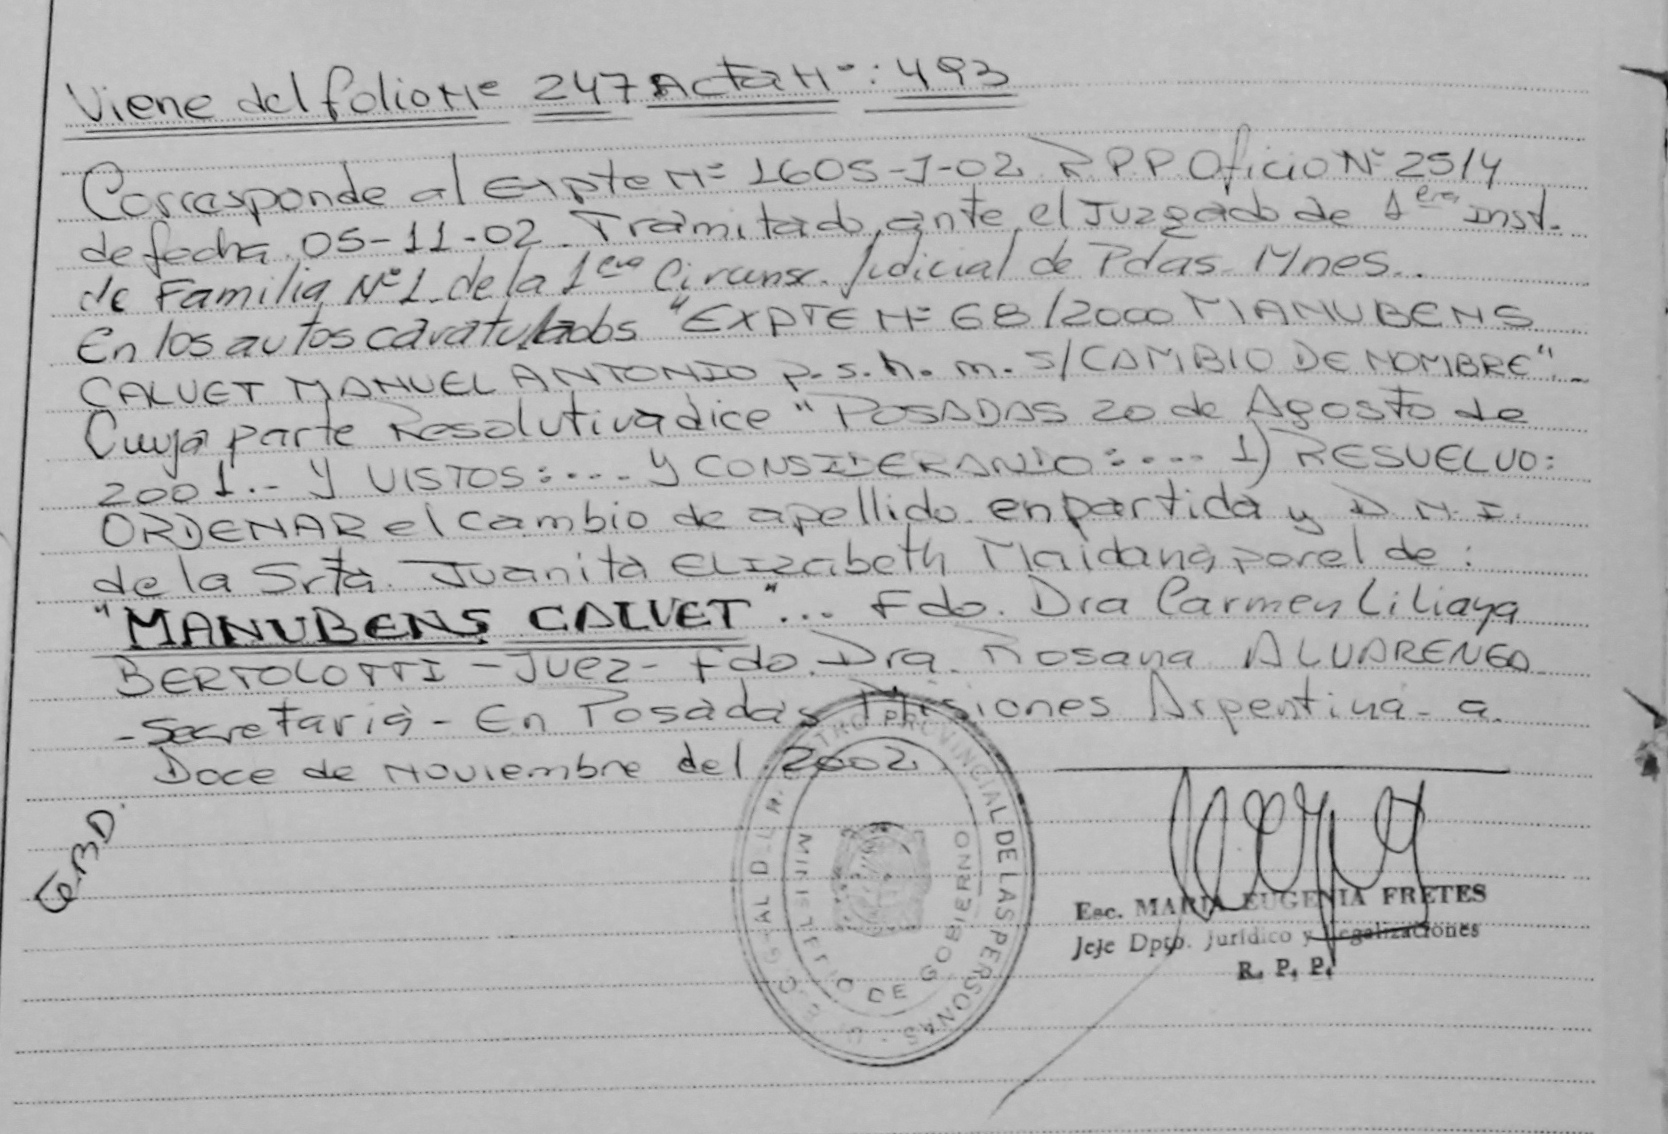 Viene del folio Nº 247 Acta Nº: 493
Corresponde al Expte Nº 1605-J-02 R.P.P. Oficio Nº 2514
de fecha 05-11-02. Tramitado, ante, el Juzgado de 1era Inst.
de Familia Nº 1. de la 1era Circunsc. Judicial de Pdas. Mnes..
En los autos caratulados "EXPTE Nº 68/2000 MANUBENS
CALVET MANUEL ANTONIO p.s.h.m. s/CAMBIO DE NOMBRE".
Cuya parte Resolutiva dice "POSADAS 20 de Agosto de
2001.- Y VISTOS:... Y CONSIDERANDO:.... 1) RESUELVO:
ORDENAR el cambio de apellido en partida y D.N.I.
de la Srta. Juanita ELIZabeth Maidana, por el de:
"MANUBENS CALVET"... Fdo. Dra Carmen Liliana
BERTOLOTTI - Juez - Fdo. Dra. Rosana ALVARENGA
- Secretaria - En Posadas Misiones Argentina - a
Doce de Noviembre del 2002
PROVINCIAL DE LAS PERSONAS
DE GOBIERNO
Esc. MARIA EUGENIA FRETES
Jefe Dpto. Jurídico y Legalizaciones
R. P. P.